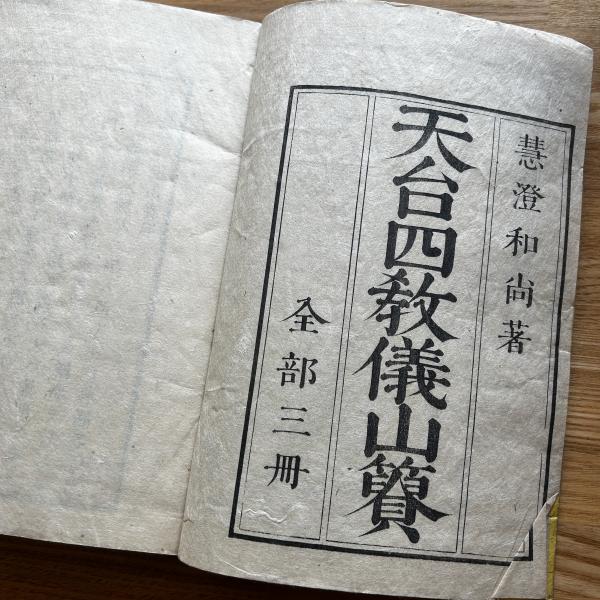 慧澄和尚著
天台四教儀山簣
全部三冊